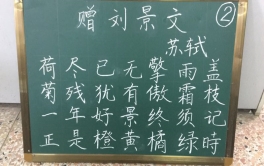 赠刘景文 ②
苏轼
荷尽已无擎雨盖
菊残犹有傲霜枝
一年好景终须记
正是橙黄橘绿時